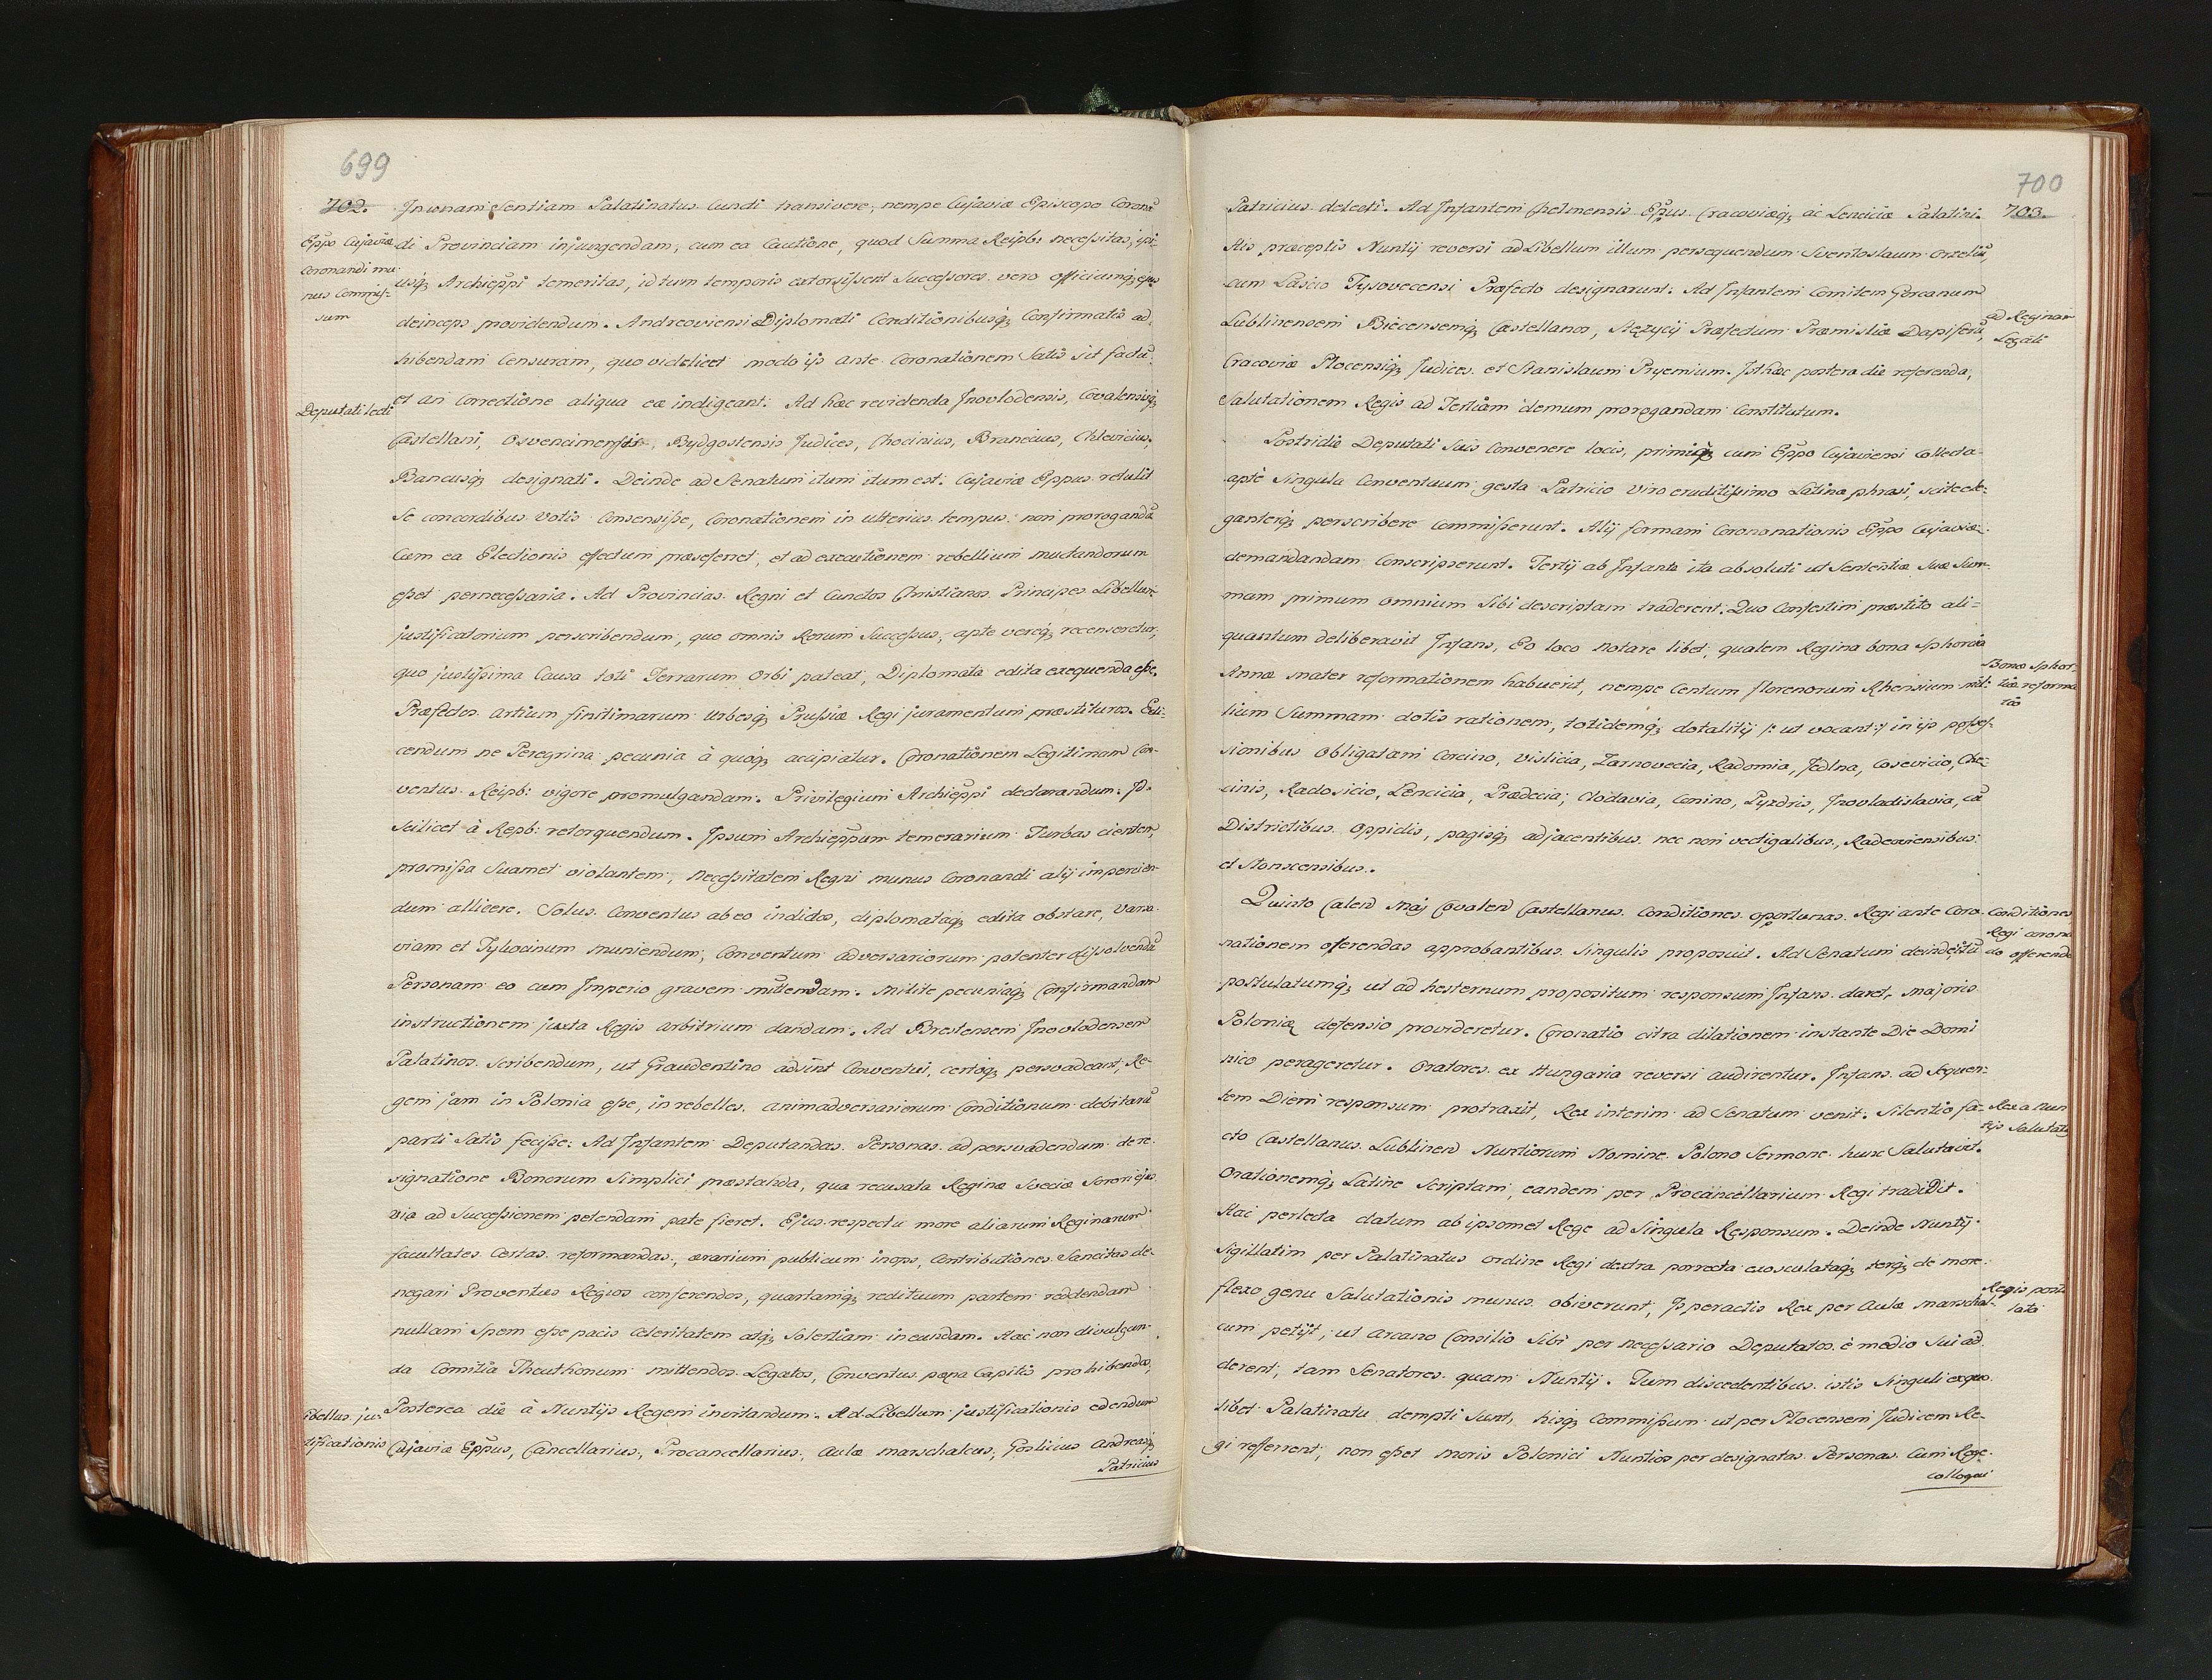 699
702.
In unam Sententiam Palatinatus Cuncti transivere, nempe Cujaviæ Episcopo Coronā
Eppo Cujaviæ
Coronandi mu
nus Commis-
sum
di Provinciam injungendam, cum ea Cautione, quod Summa Reipb: necessitas, ipi-
usq; Archieppi temeritas, id tum temporis extorsissent Successores vero officiumq; ejus
deinceps providendum. Andreoviensi Diplomati Conditionibusq; Confirmatis ad-
hibendam Censuram, quo videlicet modo ijs ante Coronationem Satis sit factū
Deputati lecti
et an Correctione aliqua eæ indigeant. Ad hæc revidenda Inovlodensis, Covalensisq;
Castellani, Osvencimensis, Bydgostensis Judices, Chocinius, Branicius, Chlevicius,
Bancusq; designati. Deinde ad Senatum itum itum est: Cujaviæ Eppus retulit
Se concordibus Votis Consensisse, Coronationem in ulterius tempus non prorogandā
Cum ea Electionis effectum præseferret, et ad executionem rebellium mulctandorum
esset pernecessaria. Ad Provincias Regni et Cunctos Christianos Principes Libellum
justificatorium perscribendum, quo omnis Rerum Successus, apte vereq; recenseretur,
quo justissima Causa toti Terrarum Orbi pateat, Diplomata edita exequenda esse,
Præfectos artium finitimarum Urbesq; Prussiæ Regi juramentum præstituros. Edi-
cendum ne Peregrina pecunia à quoq; accipiatur. Coronationem Legitimam Con-
ventus Reipb: vigore promulgandam. Privilegium Archieppi declarandum. Id
scilicet à Repb: retorquendum. Ipsum Archieppum temerarium Turbas cientem,
promissa Suamet violantem, necessitatem Regni munus Coronandi alij impercien-
dum allicere. Solus Conventus ab eo indictos, diplomataq; edita obstare, Varsa-
viam et Tykocinum muniendum, Conventum adversariorum potenter dissolvendū
Personam eo cum Imperio gravem mittendam. Milite pecuniaq; Confirmandam
instructionem juxta Regis arbitrium dandam. Ad Brestensem Inovlodensem
Palatinos Scribendum, ut Graudentino adsint Conventui, certoq; persvadeant, Re-
gem jam in Polonia esse, in rebelles animadversurum Conditionum debitarū
parti Satis fecisse: Ad Infantem Deputandas Personas ad persvadendum de re-
signatione Bonorum Simplici præstanda, qua recusata Reginæ Sveciæ Sorori ejus
via ad Successionem petendam pate fieret. Ejus respectu more aliarum Reginarum
facultates Certas reformandas, ærarium publicum inops, Contributiones Sancitas de-
negari Proventus Regios conferendos, quartamq; redituum partem reddendam
nullam Spem esse pacis Celeritatem atq; Solertiam ineundam. Hac non divulgan-
da Comitia Theuthonum mittendos Legatos, Conventus pæna Capitis prohibendos,
Libellus jus-
tificationis
Posterea die à Nuntijs Regem invitandum. Ad Libellum justificationis edendum
Cujaviæ Eppus, Cancellarius, Procancellarius, Aulæ marschalcus, Goslicius Andreasq;
Patricius
700
703.
Patricius delecti. Ad Infantem Chelmensis Eppus Cracoviæq; ac Lenciciæ Palatini.
His præceptis Nuntij reversi ad Libellum illum persequendum Sventoslaum Orzeliū,
cum Lascio Tysovecensi Præfecto designarunt. Ad Infantem Comitem Gorcanum
ad Reginam
Legati
Lublinensem Biecensemq; Castellanos, Stęzycij Præfectum Præmisliæ Dapiferū,
Cracoviæ Plocensisq; Judices et Stanislaum Pryemium. Ist hæc postera die referenda,
Salutationem Regis ad Tertiam demum prorogandam Constitutum.
Postridie Deputati Suis Convenere locis, primiq; cum Eppo Cujaviensi Collecta
aptè Singula Conventuum gesta Patricio Viro eruditissimo Latina phrasi, scite ele-
ganterq; perscribere Commisserunt. Alij formam Corononationis Eppo Cujaviæ
demandandam Conscripserunt. Tertij ab Infante ita absoluti ut Sententiæ Suæ Sum-
mam primum omnium Sibi descriptam traderent. Quo Confestim præstito ali-
quantum deliberavit Infans. Eo loco notare libet, qualem Regina bona Sphorcia
Bonæ Sphor-
tiæ reforma
tio
Annæ mater reformationem habuerit, nempe Centum florenorum Rhensium mil-
lium Summam dotis rationem, totidemq; dotalitij /: ut vocant :/ in ijs posses-
sionibus Obligatam Corcino, Vislicia, Zarnovecia, Radomia, Jedlna, Cosevicio, Che-
cinis, Radosicio, Lencicia, Prædecia, Clodavia, Conino, Pyzdris, Inovladislavia, cū
Districtibus Oppidis, pagisq; adjacentibus nec non vectigalibus, Radexviensibus
et Slonscensibus.
Quinto Calend Maij Covalen Castellanus Conditiones opportunas Regi ante Coro-
Conditiones
Regi corona
do offerendæ
nationem oferendas approbantibus Singulis proposuit. Ad Senatum deinde itū
postulatumq; ut ad hesternum propositum responsum Infans daret, Majoris
Poloniæ defensio provideretur. Coronatio citra dilationem instante Die Domi
nico perageretur. Oratores ex Hungaria reversi audirentur. Infans ad Sequen-
tem Diem responsum protraxit, Rex interim ad Senatum venit. Silentio fa-
Rex a Nun
tijs Salutatꝰ
cto Castellanus Lublinen Nuntiorum Nomine Polono Sermone hunc Salutavit.
Orationemq; Latine Scriptam, eandem per Procancellarium Regi tradidit.
Hac perlecta datum ab ipsomet Rege ad Singula Responsum. Deinde Nuntij
Sigillatim per Palatinatus ordine Regi dextra porrecta exosculataq; terq; de more
Regis postu
lata
flexo genu Salutationis munus obiverunt, Is peractis Rex per Aulæ marschal-
cum petijt, ut arcano Consilio Sibi per necessario Deputatos è medio Sui ad
derent, tam Senatores quam Nuntij. Tum discedentibus istis Singuli ex quo
libet Palatinatu dempti Sunt, hisq; Commissum ut per Plocensem Judicem Re-
gi referrent, non esset moris Polonici Nuntios per designatas Personas Cum Rege
colloqui